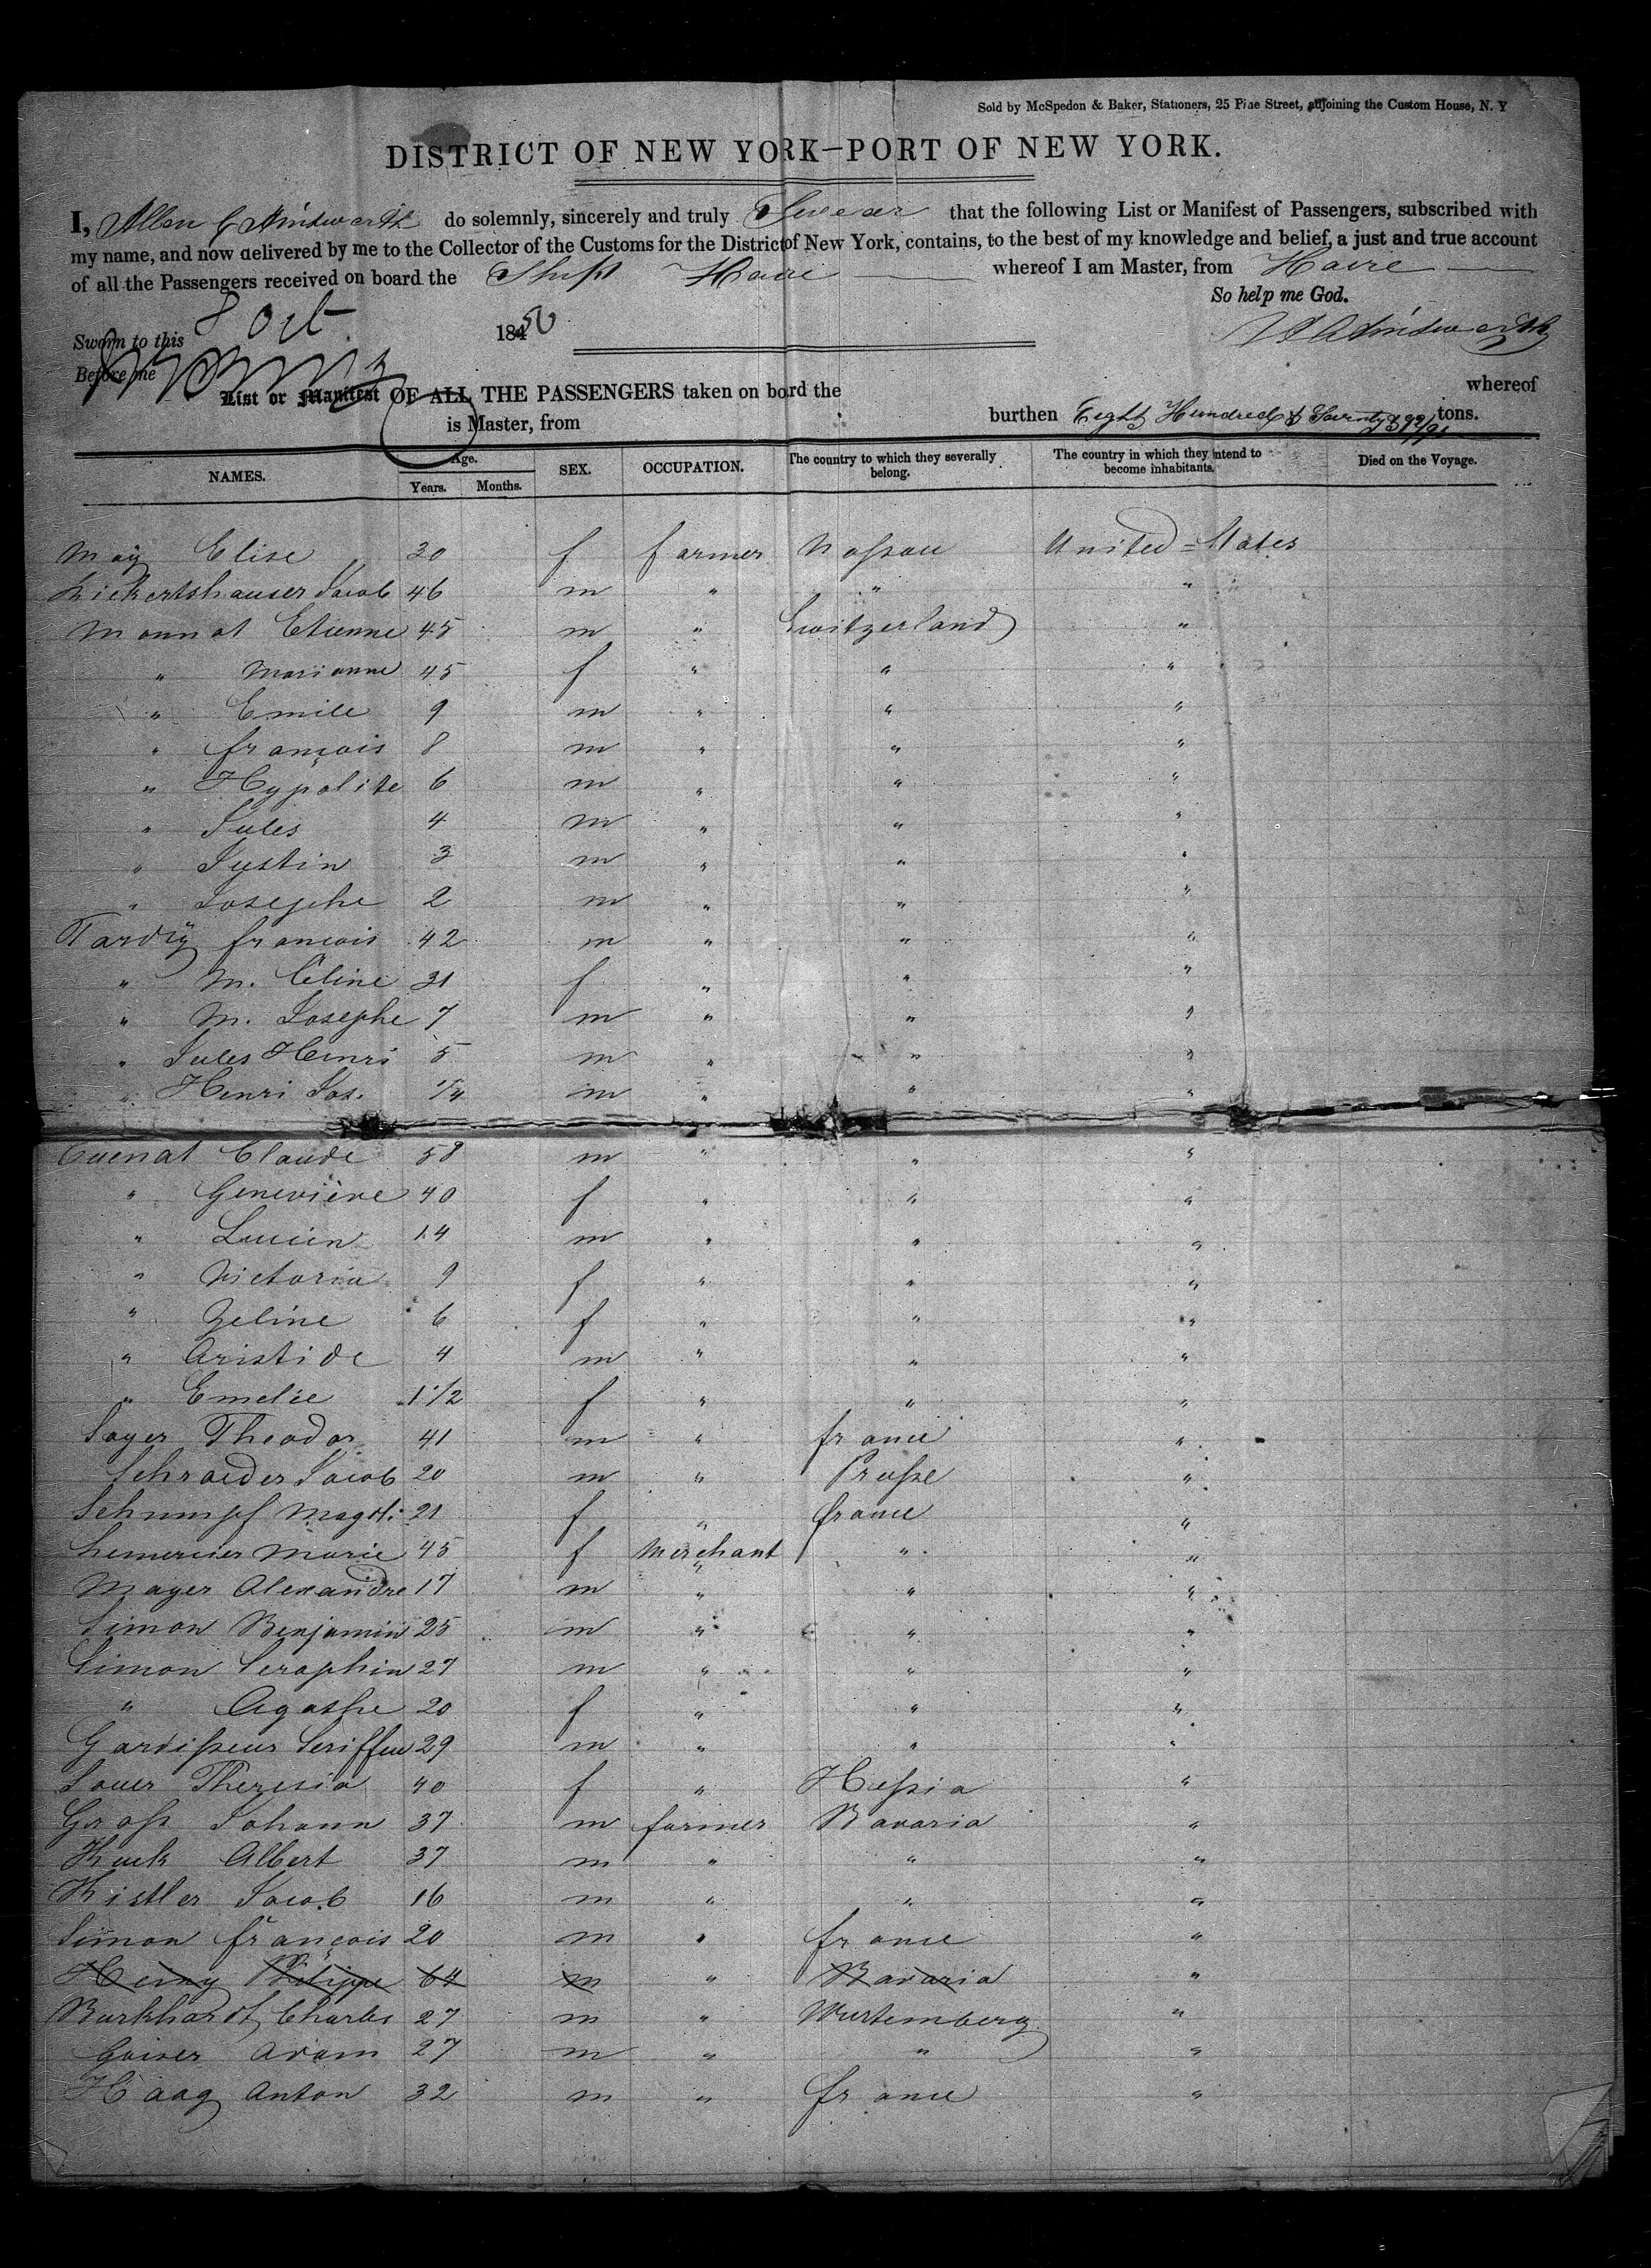 Sold by McSpedon & Baker, Stationers, 25 Pine Street, adjoining the Custom House, N. Y
DISTRICT OF NEW YORK—PORT OF NEW YORK.
I, Allen C Ainsworth do solemnly, sincerely and truly Swear that the following List or Manifest of Passengers, subscribed with
my name, and now delivered by me to the Collector of the Customs for the District of New York, contains, to the best of my knowledge and belief, a just and true account
of all the Passengers received on board the Ship Havre whereof I am Master, from Havre
So help me God.
Sworn to this 8 Oct 1850
Before me
List or Manifest OF ALL THE PASSENGERS taken on bord the whereof
is Master, from burthen Eight Hundred & Seventy tons.
NAMES. Age. Years. Months. SEX. OCCUPATION. The country to which they severally belong. The country in which they intend to become inhabitants. Died on the Voyage.
Maÿ Elise 30 f farmer Naſsau United=States
Rickertshauser Jacob 46 m " " "
Monnat Etienne 45 m " Switzerland "
" Marianne 45 f " " "
" Emile 9 m " " "
" françois 8 m " " "
" Hypolite 6 m " " "
" Jules 4 m " " "
" Justin 3 m " " "
" Josephe 2 m " " "
Tardÿ francois 42 m " " "
" M. Celine 31 f " " "
" M. Josephe 7 m " " "
" Jules Henri 5 m " " "
" Henri Jos. 1/4 m " " "
Cuenat Claude 58 m " " "
" Geneviève 40 f " " "
" Lucien 14 m " " "
" Victoria 9 f " " "
" Zeline 6 f " " "
" Aristide 4 m " " "
" Emelie 1 1/2 f " " "
Soyer Theodor 41 m " france "
Schraeder Jacob 20 m " Pruſse "
Schrumpf Magd: 21 f " france "
Lemercier Marie 45 f Merchant " "
Mayer Alexandre 17 m " " "
Simon Benjamin 25 m " " "
Simon Seraphin 27 m " " "
" Agathe 20 f " " "
Gardiſseur 29 m " " "
Sauer Theresia 40 f " Heſsia "
Groſs Johann 37 m farmer Bavaria "
Kuck Albert 37 m " " "
Kistler Jacob 16 m " " "
Simon françois 20 m " france "
Philippe 64 m " Bavaria "
Burkhardt Charles 27 m " Wurtemberg "
Gaiser Adam 27 m " " "
Haag Anton 32 m " france "